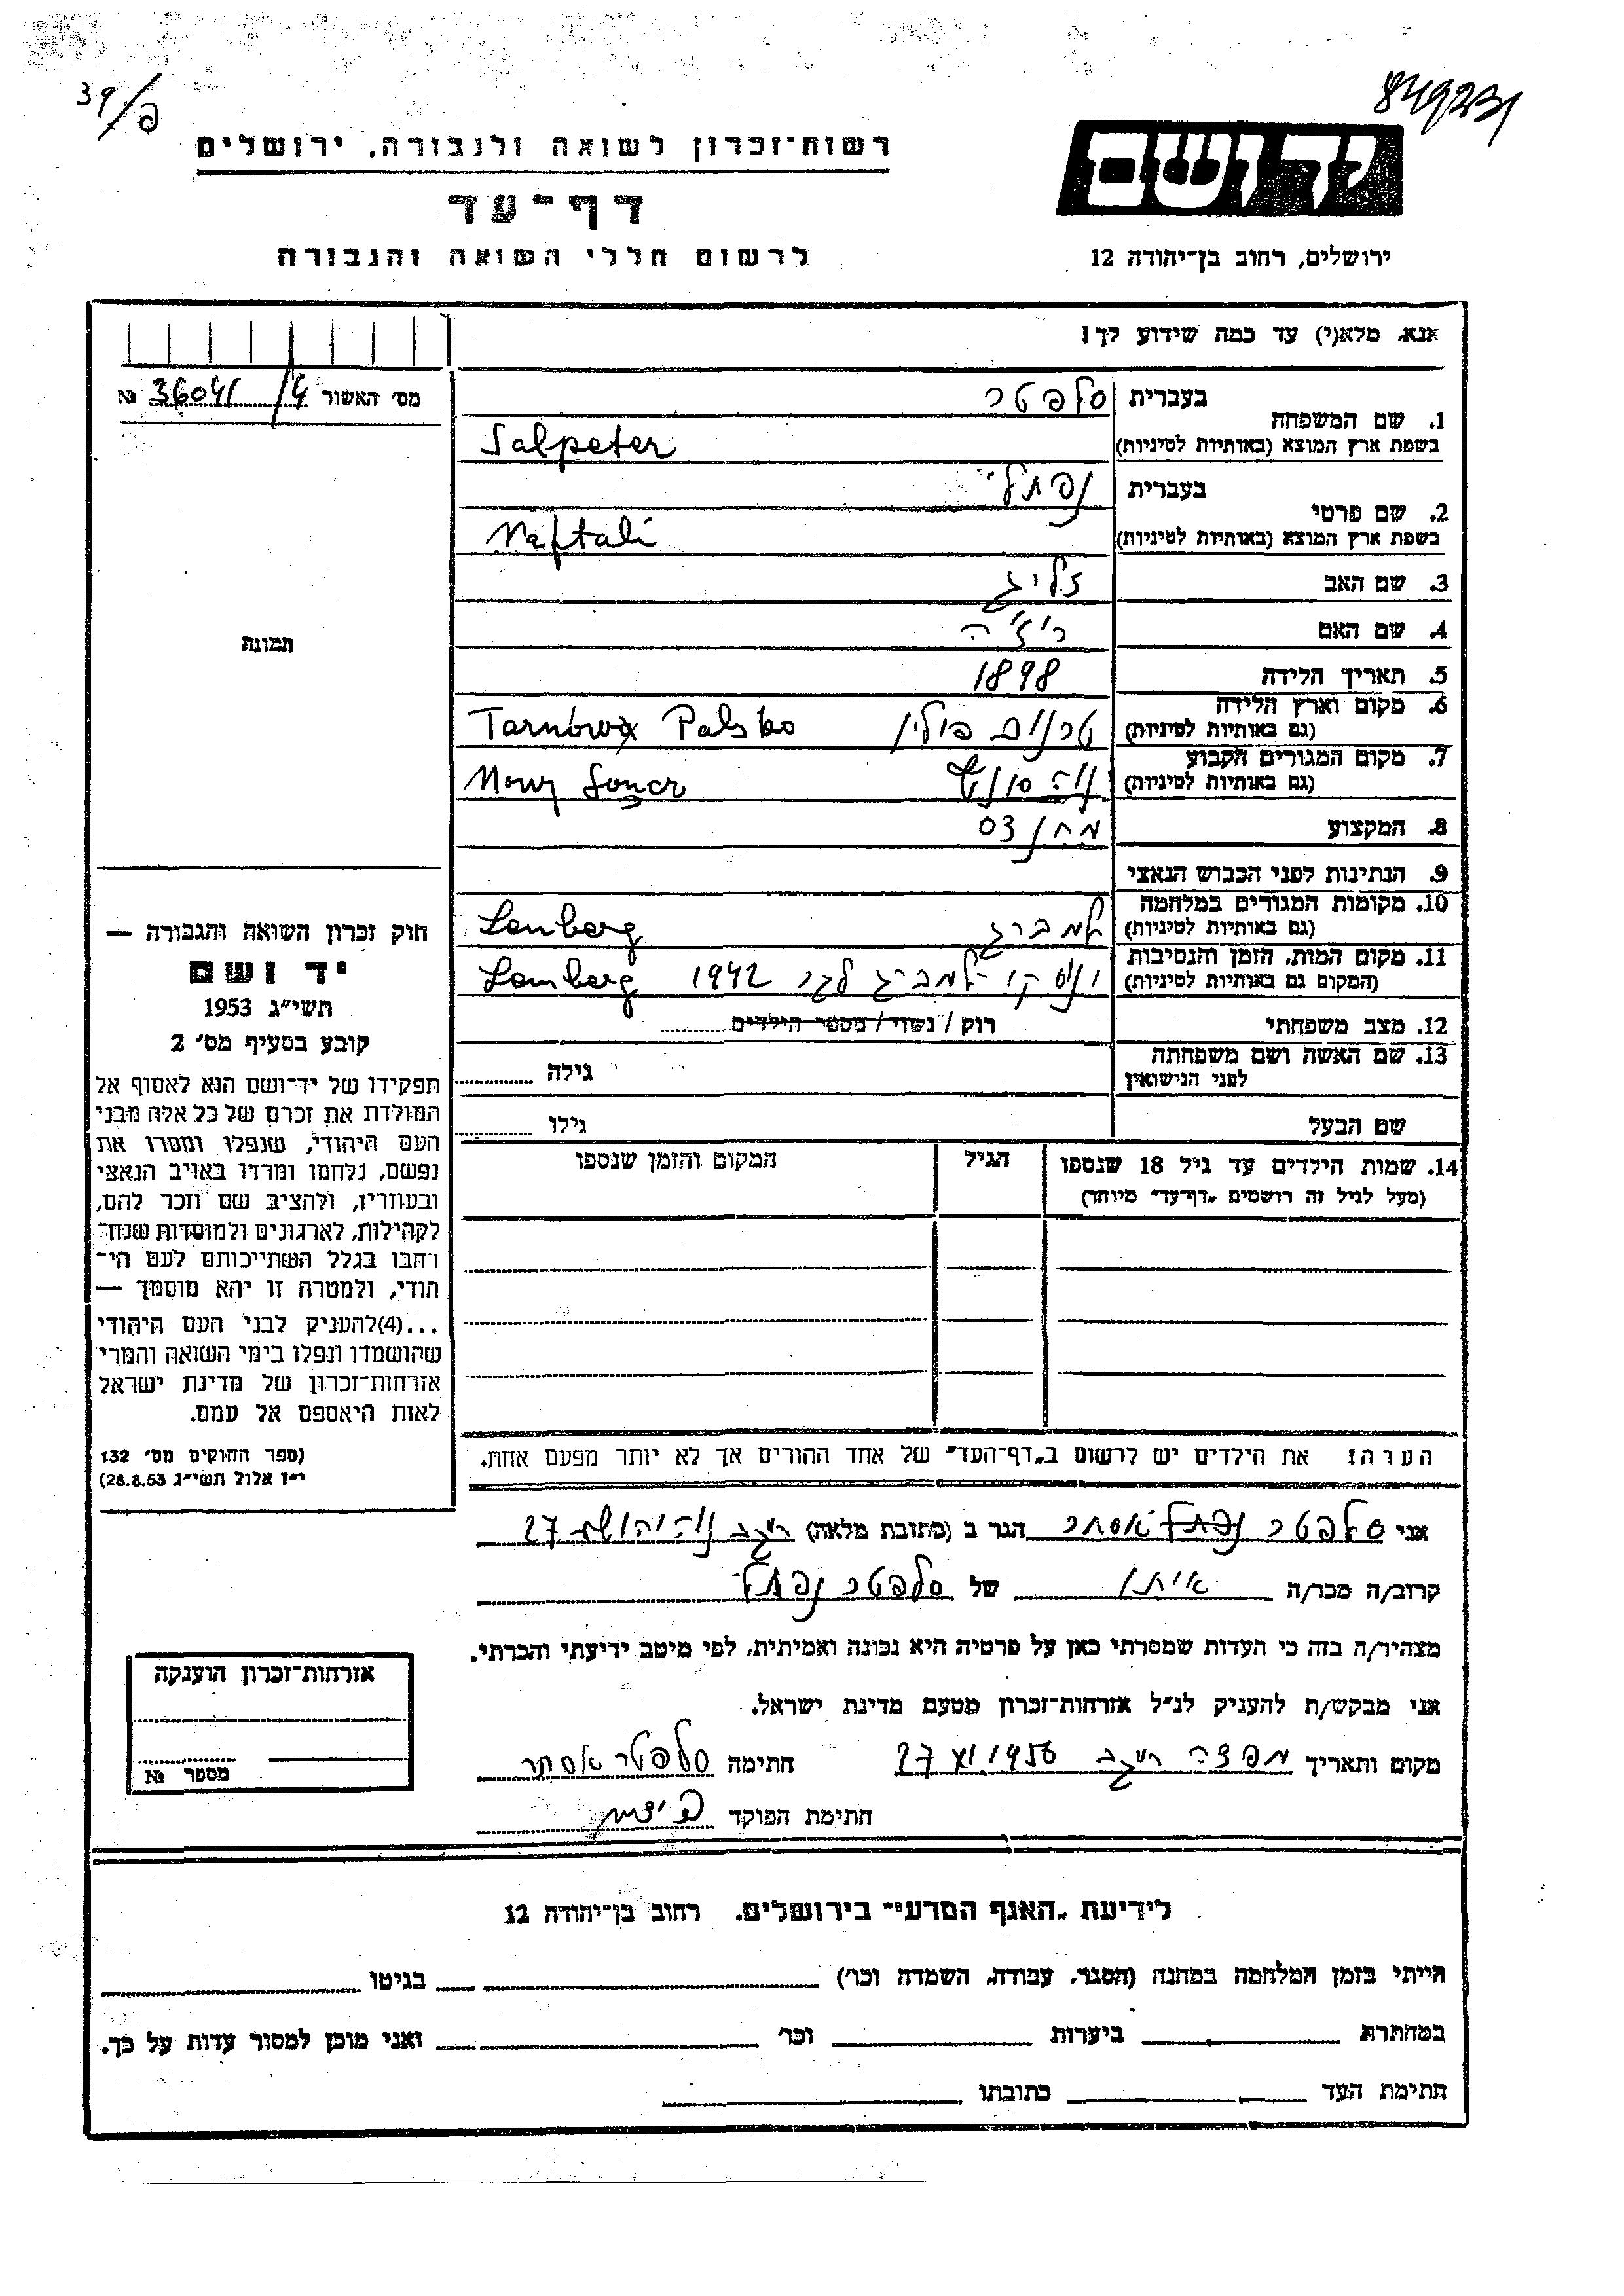 39/פ
849231
רשות־זכרון לשואה ולגבורה, ירושלים
יד ושם
דף־עד
לרשום חללי השואה והגבורה
ירושלים, רחוב בן־יהודה 12
אנא, מלא(י) עד כמה שידוע לך!
מס׳ האשור 36041/4 №
1. שם המשפחה בעברית סלפטר
בשפת ארץ המוצא (באותיות לטיניות) Salpeter
2. שם פרטי בעברית נפתלי
בשפת ארץ המוצא (באותיות לטיניות) Naftali
3. שם האב זליג
4. שם האם
5. תאריך הלידה 1898
6. מקום וארץ הלידה
(גם באותיות לטיניות) פולין
7. מקום המגורים הקבוע
(גם באותיות לטיניות)
8. המקצוע
9. הנתינות לפני הכבוש הנאצי
10. מקומות המגורים במלחמה
(גם באותיות לטיניות) למברג Lemberg
11. מקום המות, הזמן והנסיבות
(המקום גם באותיות לטיניות) למברג 1942 Lemberg
12. מצב משפחתי רוק / נשוי / מספר הילדים
13. שם האשה ושם משפחתה
לפני הנישואין גילה
שם הבעל גילו
14. שמות הילדים עד גיל 18 שנספו הגיל המקום והזמן שנספו
(מעל לגיל זה רושמים „דף־עד״ מיוחד)
הערה: את הילדים יש לרשום ב„דף־העד״ של אחד ההורים אך לא יותר מפעם אחת.
תמונה
חוק זכרון השואה והגבורה —
יד ושם
תשי״ג 1953
קובע בסעיף מס׳ 2
תפקידו של יד־ושם הוא לאסוף אל
המולדת את זכרם של כל אלה מבני
העם היהודי, שנפלו ומסרו את
נפשם, נלחמו ומרדו באויב הנאצי
ובעוזריו, ולהציב שם וזכר להם,
לקהילות, לארגונים ולמוסדות שנח־
רחבו בגלל השתייכותם לעם הי־
הודי, ולמטרה זו יהא מוסמך —
...(4)להעניק לבני העם היהודי
שהושמדו ונפלו בימי השואה והמרי
אזרחות־זכרון של מדינת ישראל
לאות היאספם אל עמם.
(ספר החוקים מס׳ 132
י״ז אלול תשי״ג 28.8.53)
אני סלפטר אסתר הגר ב (כתובת מלאה) נוה יהושע 27
קרוב/ה מכר/ה של סלפטר נפתלי
מצהיר/ה בזה כי העדות שמסרתי כאן על פרטיה היא נכונה ואמיתית, לפי מיטב ידיעתי והכרתי.
אני מבקש/ת להעניק לנ״ל אזרחות־זכרון מטעם מדינת ישראל.
מקום ותאריך 27 XI 1956 חתימה סלפטר אסתר
חתימת הפוקד
אזרחות־זכרון הוענקה
מספר №
לידיעת „האגף המדעי״ בירושלים, רחוב בן־יהודה 12
הייתי בזמן המלחמה במחנה (הסגר, עבודה, השמדה וכו׳) בגיטו
במחתרת ביערות וכו׳ ואני מוכן למסור עדות על כך.
חתימת העד כתובתו